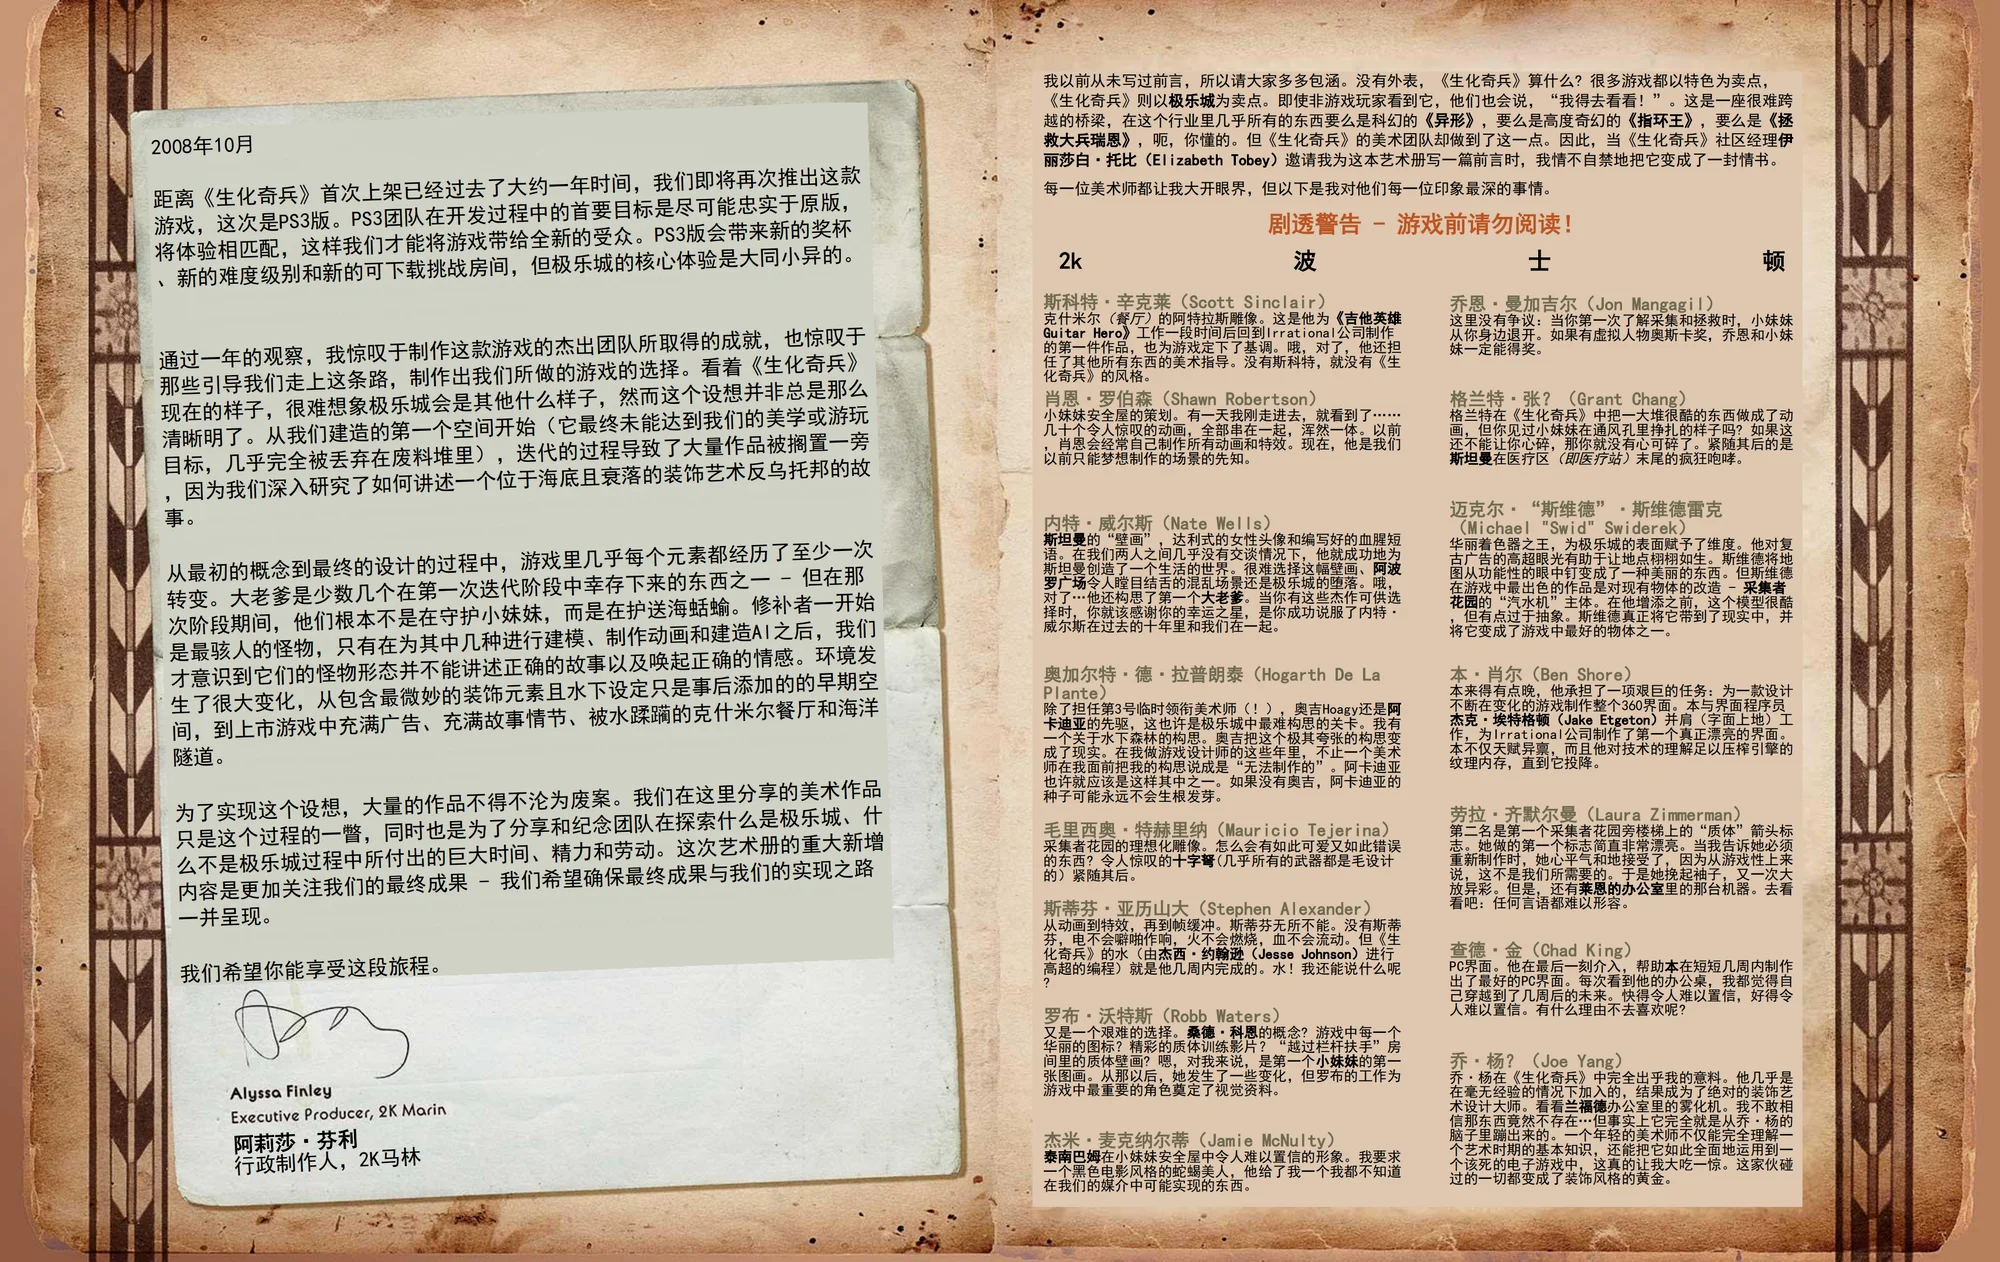 2008年10月
距离《生化奇兵》首次上架已经过去了大约一年时间，我们即将再次推出这款
游戏，这次是PS3版。PS3团队在开发过程中的首要目标是尽可能忠实于原版，
将体验相匹配，这样我们才能将游戏带给全新的受众。PS3版会带来新的奖杯
、新的难度级别和新的可下载挑战房间，但极乐城的核心体验是大同小异的。
通过一年的观察，我惊叹于制作这款游戏的杰出团队所取得的成就，也惊叹于
那些引导我们走上这条路，制作出我们所做的游戏的选择。看着《生化奇兵》
现在的样子，很难想象极乐城会是其他什么样子，然而这个设想并非总是那么
清晰明了。从我们建造的第一个空间开始（它最终未能达到我们的美学或游玩
目标，几乎完全被丢弃在废料堆里），迭代的过程导致了大量作品被搁置一旁
，因为我们深入研究了如何讲述一个位于海底且衰落的装饰艺术反乌托邦的故
事。
从最初的概念到最终的设计的过程中，游戏里几乎每个元素都经历了至少一次
转变。大老爹是少数几个在第一次迭代阶段中幸存下来的东西之一 - 但在那
次阶段期间，他们根本不是在守护小妹妹，而是在护送海蛞蝓。修补者一开始
是最骇人的怪物，只有在为其中几种进行建模、制作动画和建造AI之后，我们
才意识到它们的怪物形态并不能讲述正确的故事以及唤起正确的情感。环境发
生了很大变化，从包含最微妙的装饰元素且水下设定只是事后添加的的早期空
间，到上市游戏中充满广告、充满故事情节、被水蹂躏的克什米尔餐厅和海洋
隧道。
为了实现这个设想，大量的作品不得不沦为废案。我们在这里分享的美术作品
只是这个过程的一瞥，同时也是为了分享和纪念团队在探索什么是极乐城、什
么不是极乐城过程中所付出的巨大时间、精力和劳动。这次艺术册的重大新增
内容是更加关注我们的最终成果 - 我们希望确保最终成果与我们的实现之路
一并呈现。
我们希望你能享受这段旅程。
Alyssa Finley
Executive Producer, 2K Marin
阿莉莎·芬利
行政制作人，2K马林
我以前从未写过前言，所以请大家多多包涵。没有外表，《生化奇兵》算什么？很多游戏都以特色为卖点，
《生化奇兵》则以极乐城为卖点。即使非游戏玩家看到它，他们也会说，“我得去看看！”。这是一座很难跨
越的桥梁，在这个行业里几乎所有的东西要么是科幻的《异形》，要么是高度奇幻的《指环王》，要么是《拯
救大兵瑞恩》，呃，你懂的。但《生化奇兵》的美术团队却做到了这一点。因此，当《生化奇兵》社区经理伊
丽莎白·托比（Elizabeth Tobey）邀请我为这本艺术册写一篇前言时，我情不自禁地把它变成了一封情书。
每一位美术师都让我大开眼界，但以下是我对他们每一位印象最深的事情。
剧透警告 - 游戏前请勿阅读！
2k 波 士 顿
斯科特·辛克莱（Scott Sinclair）
克什米尔（餐厅）的阿特拉斯雕像。这是他为《吉他英雄
Guitar Hero》工作一段时间后回到Irrational公司制作
的第一件作品，也为游戏定下了基调。哦，对了，他还担
任了其他所有东西的美术指导。没有斯科特，就没有《生
化奇兵》的风格。
肖恩·罗伯森（Shawn Robertson）
小妹妹安全屋的策划。有一天我刚走进去，就看到了……
几十个令人惊叹的动画，全部串在一起，浑然一体。以前
，肖恩会经常自己制作所有动画和特效。现在，他是我们
以前只能梦想制作的场景的先知。
内特·威尔斯（Nate Wells）
斯坦曼的“壁画”，达利式的女性头像和编写好的血腥短
语。在我们两人之间几乎没有交谈情况下，他就成功地为
斯坦曼创造了一个生活的世界。很难选择这幅壁画、阿波
罗广场令人瞠目结舌的混乱场景还是极乐城的堕落。哦，
对了…他还构思了第一个大老爹。当你有这些杰作可供选
择时，你就该感谢你的幸运之星，是你成功说服了内特·
威尔斯在过去的十年里和我们在一起。
奥加尔特·德·拉普朗泰（Hogarth De La
Plante）
除了担任第3号临时领衔美术师（！），奥吉Hoagy还是阿
卡迪亚的先驱，这也许是极乐城中最难构思的关卡。我有
一个关于水下森林的构思。奥吉把这个极其夸张的构思变
成了现实。在我做游戏设计师的这些年里，不止一个美术
师在我面前把我的构思说成是“无法制作的”。阿卡迪亚
也许就应该是这样其中之一。如果没有奥吉，阿卡迪亚的
种子可能永远不会生根发芽。
毛里西奥·特赫里纳（Mauricio Tejerina）
采集者花园的理想化雕像。怎么会有如此可爱又如此错误
的东西？令人惊叹的十字弩(几乎所有的武器都是毛设计
的）紧随其后。
斯蒂芬·亚历山大（Stephen Alexander）
从动画到特效，再到帧缓冲。斯蒂芬无所不能。没有斯蒂
芬，电不会噼啪作响，火不会燃烧，血不会流动。但《生
化奇兵》的水（由杰西·约翰逊（Jesse Johnson）进行
高超的编程）就是他几周内完成的。水！我还能说什么呢
？
罗布·沃特斯（Robb Waters）
又是一个艰难的选择。桑德·科恩的概念？游戏中每一个
华丽的图标？精彩的质体训练影片？“越过栏杆扶手”房
间里的质体壁画？嗯，对我来说，是第一个小妹妹的第一
张图画。从那以后，她发生了一些变化，但罗布的工作为
游戏中最重要的角色奠定了视觉资料。
杰米·麦克纳尔蒂（Jamie McNulty）
泰南巴姆在小妹妹安全屋中令人难以置信的形象。我要求
一个黑色电影风格的蛇蝎美人，他给了我一个我都不知道
在我们的媒介中可能实现的东西。
乔恩·曼加吉尔（Jon Mangagil）
这里没有争议：当你第一次了解采集和拯救时，小妹妹
从你身边退开。如果有虚拟人物奥斯卡奖，乔恩和小妹
妹一定能得奖。
格兰特·张？（Grant Chang）
格兰特在《生化奇兵》中把一大堆很酷的东西做成了动
画，但你见过小妹妹在通风孔里挣扎的样子吗？如果这
还不能让你心碎，那你就没有心可碎了。紧随其后的是
斯坦曼在医疗区（即医疗站）末尾的疯狂咆哮。
迈克尔·“斯维德”·斯维德雷克
（Michael "Swid" Swiderek）
华丽着色器之王，为极乐城的表面赋予了维度。他对复
古广告的高超眼光有助于让地点栩栩如生。斯维德将地
图从功能性的眼中钉变成了一种美丽的东西。但斯维德
在游戏中最出色的作品是对现有物体的改造 - 采集者
花园的“汽水机”主体。在他增添之前，这个模型很酷
，但有点过于抽象。斯维德真正将它带到了现实中，并
将它变成了游戏中最好的物体之一。
本·肖尔（Ben Shore）
本来得有点晚，他承担了一项艰巨的任务：为一款设计
不断在变化的游戏制作整个360界面。本与界面程序员
杰克·埃特格顿（Jake Etgeton）并肩（字面上地）工
作，为Irrational公司制作了第一个真正漂亮的界面。
本不仅天赋异禀，而且他对技术的理解足以压榨引擎的
纹理内存，直到它投降。
劳拉·齐默尔曼（Laura Zimmerman）
第二名是第一个采集者花园旁楼梯上的“质体”箭头标
志。她做的第一个标志简直非常漂亮。当我告诉她必须
重新制作时，她心平气和地接受了，因为从游戏性上来
说，这不是我们所需要的。于是她挽起袖子，又一次大
放异彩。但是，还有莱恩的办公室里的那台机器。去看
看吧：任何言语都难以形容。
查德·金（Chad King）
PC界面。他在最后一刻介入，帮助本在短短几周内制作
出了最好的PC界面。每次看到他的办公桌，我都觉得自
己穿越到了几周后的未来。快得令人难以置信，好得令
人难以置信。有什么理由不去喜欢呢？
乔·杨？（Joe Yang）
乔·杨在《生化奇兵》中完全出乎我的意料。他几乎是
在毫无经验的情况下加入的，结果成为了绝对的装饰艺
术设计大师。看看兰福德办公室里的雾化机。我不敢相
信那东西竟然不存在…但事实上它完全就是从乔·杨的
脑子里蹦出来的。一个年轻的美术师不仅能完全理解一
个艺术时期的基本知识，还能把它如此全面地运用到一
个该死的电子游戏中，这真的让我大吃一惊。这家伙碰
过的一切都变成了装饰风格的黄金。